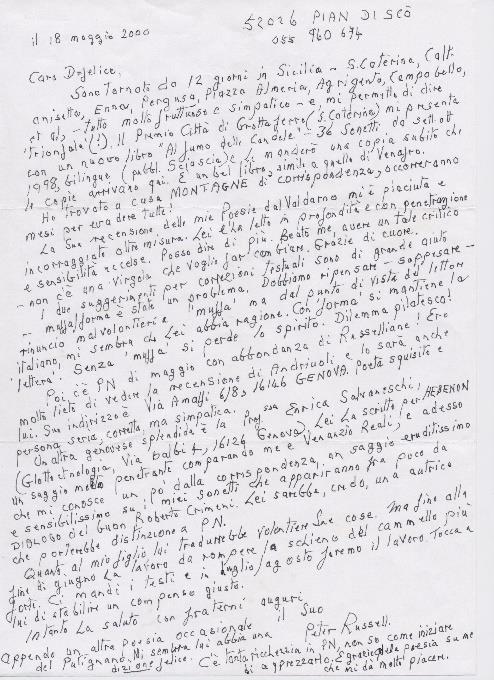 il 18 maggio 2000
52026 PIAN DI SCÒ
055 960 674
Caro D. Felice,
Sono tornato da 12 giorni in Sicilia – S. Caterina, Calt-
anisetta, Enna, Pergusa, Piazza Almeria, Agrigento, Campobello,
et al, – tutto molto fruttuoso e simpatico – e, mi permetto di dire
'trionfale' (!). Il Premio Città di Grottaferro / S. Caterina) mi presenta
con un nuovo libro "Al fumo delle Candele" – 36 Sonetti da sett. ott
1998, bilingue (pubbl. Sciascia) e Le manderò una copia subito che
le copie arrivano qui. È un bel libro, simile a quello di Venafro.
Ho trovato a casa MONTAGNE di corrispondenza, occorreranno
mesi per evadere tutte!
La Sua recensione delle mie Poesie dal Valdarno mi è piaciuta e
incorraggiato oltre misura. Lei è ha letto in profondità e con penetrazione
e sensibilità eccelse. Posso dire di più. Beato me, avere un tale critico
– non c'è una virgola che voglio far cambiare. Grazie di cuore.
I due suggerimenti per correzioni testuali sono di grande aiuto
– muffa/forma è stato un problema. Dobbiamo ripensare – soppesare –
rinuncio malvolentieri a 'muffa' ma dal punto di vista del lettore
italiano, mi sembra che Lei abbia ragione. Con 'forma' si mantiene la
'lettera'. Senza 'muffa' si perde lo spirito. Dilemma pilatesco!
Poi c'è PN di maggio con abbondanza di Russelliane! Ero
molto lieto di vedere la recensione di Andriuoli e lo sarà anche
lui. Suo indirizzo è Via Amalfi 6/8, 16146 GENOVA. Poeta squisito e
persona seria, corretta, ma simpatica.
Un altra genovese splendida è la Prof.ssa Enrica Salvaneschi,
(Glottoetnologia, Via Balbi 4, 16126 Genova). Lei ha scritto per HEBENON
un saggio molto penetrante comparando me e Venanzio Reali, e adesso
che mi conosce un pò dalla corrispondenza, un saggio eruditissimo
e sensibilissimo su i miei Sonetti che appariranno fra poco da
DIALOGO del buon Roberto Crimeni. Lei sarebbe, credo, una autrice
che porterebbe distinzione a PN.
Quant' al mio figlio lui tradurrebbe volentieri Sue cose. Ma fino alla
fine di giugno ha lavoro da rompere la schiena del cammello più
forte. Ci mandi i testi e in luglio/agosto faremo il lavoro. Tocca a
lui di stabilire un compenso giusto.
Intanto La saluto con fraterni auguri
il Suo
Peter Russell.
Appendo un altra poesia occasionale
del Putignano. Mi sembra lui abbia una
dizione felice. C'è tanta ricchezza in PN, non so come iniziare
di apprezzarlo. E grazie della poesia su me
che mi dà molto piacere.